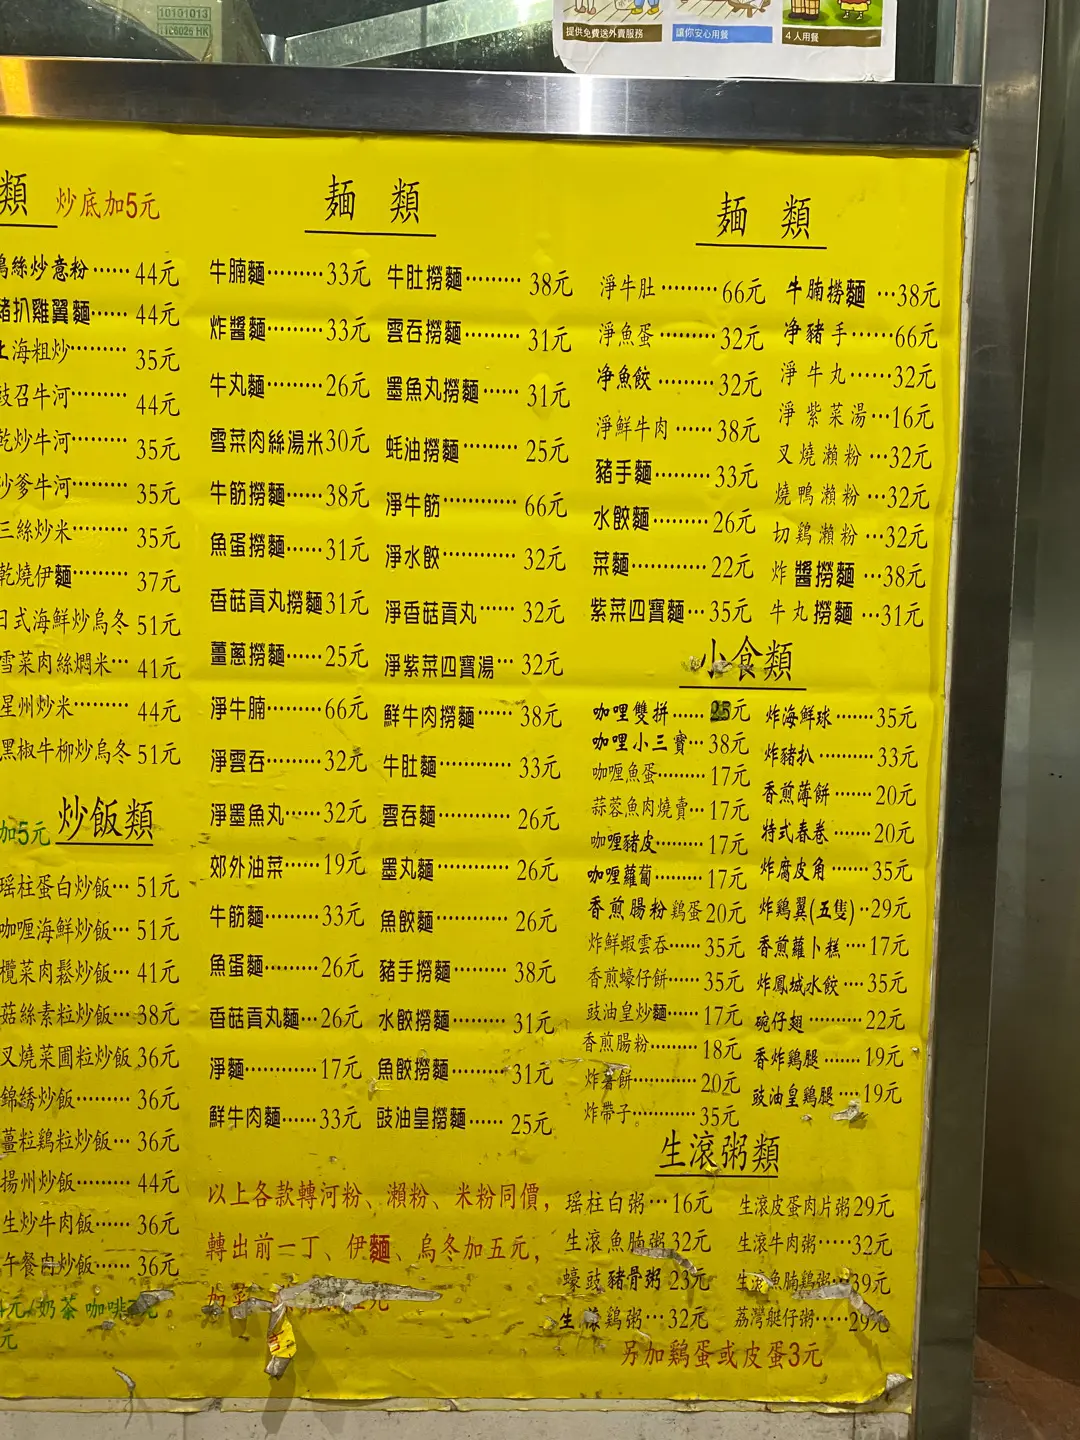 10101013
11C6025 HK
提供免費送外賣服務
讓你安心用餐
4人用餐
類 炒底加5元
絲炒意粉······44元
豬扒雞翼麵······44元
上海粗炒·········35元
豉召牛河·········44元
乾炒牛河·········35元
炒爹牛河·········35元
三絲炒米·········35元
乾燒伊麵·········37元
日式海鮮炒烏冬 51元
雪菜肉絲燜米···41元
星州炒米·········44元
黑椒牛柳炒烏冬 51元
加5元 炒飯類
瑶柱蛋白炒飯···51元
咖喱海鮮炒飯···51元
欖菜肉鬆炒飯···41元
菇絲素粒炒飯···38元
叉燒菜圃粒炒飯 36元
錦綉炒飯·········36元
薑粒鷄粒炒飯···36元
揚州炒飯·········44元
生炒牛肉飯······36元
午餐肉炒飯······36元
4元/奶茶 咖啡
元
麵 類
牛腩麵·········33元
炸醬麵·········33元
牛丸麵·········26元
雪菜肉絲湯米30元
牛筋撈麵······38元
魚蛋撈麵······31元
香菇貢丸撈麵31元
薑蔥撈麵······25元
淨牛腩·········66元
淨雲吞·········32元
淨墨魚丸······32元
郊外油菜······19元
牛筋麵·········33元
魚蛋麵·········26元
香菇貢丸麵···26元
淨麵············17元
鮮牛肉麵······33元
牛肚撈麵·········38元
雲吞撈麵·········31元
墨魚丸撈麵······31元
蚝油撈麵·········25元
淨牛筋············66元
淨水餃············32元
淨香菇貢丸······32元
淨紫菜四寶湯···32元
鮮牛肉撈麵······38元
牛肚麵············33元
雲吞麵············26元
墨丸麵············26元
魚餃麵············26元
豬手撈麵·········38元
水餃撈麵·········31元
魚餃撈麵·········31元
豉油皇撈麵······25元
以上各款轉河粉、瀨粉、米粉同價，
轉出前一丁、伊麵、烏冬加五元，
加菜
元
麵 類
淨牛肚·········66元
淨魚蛋·········32元
净魚餃·········32元
淨鮮牛肉······38元
豬手麵·········33元
水餃麵·········26元
菜麵············22元
紫菜四寶麵···35元
牛腩撈麵···38元
净豬手······66元
淨牛丸······32元
淨紫菜湯···16元
叉燒瀨粉···32元
燒鴨瀨粉···32元
切鷄瀨粉···32元
炸醬撈麵···38元
牛丸撈麵···31元
小食類
咖哩雙拼······元
咖哩小三寶···38元
咖喱魚蛋·········17元
蒜蓉魚肉燒賣···17元
咖喱豬皮·········17元
咖喱蘿蔔·········17元
香煎腸粉鷄蛋20元
炸鮮蝦雲吞······35元
香煎蠔仔餅······35元
豉油皇炒麵······17元
香煎腸粉·········18元
炸薯餅············20元
炸帶子············35元
炸海鮮球·······35元
炸豬扒·········33元
香煎薄餅·······20元
特式春卷·······20元
炸腐皮角·······35元
炸鷄翼(五隻)··29元
香煎蘿卜糕····17元
炸鳳城水餃····35元
碗仔翅··········22元
香炸鷄腿·······19元
豉油皇鷄腿····19元
生滾粥類
瑶柱白粥···16元
生滾魚腩粥32元
蠔豉豬骨粥 23元
生滾鷄粥···32元
生滾皮蛋肉片粥29元
生滾牛肉粥·····32元
生滾魚腩鷄粥···39元
荔灣艇仔粥·····29元
另加鷄蛋或皮蛋3元